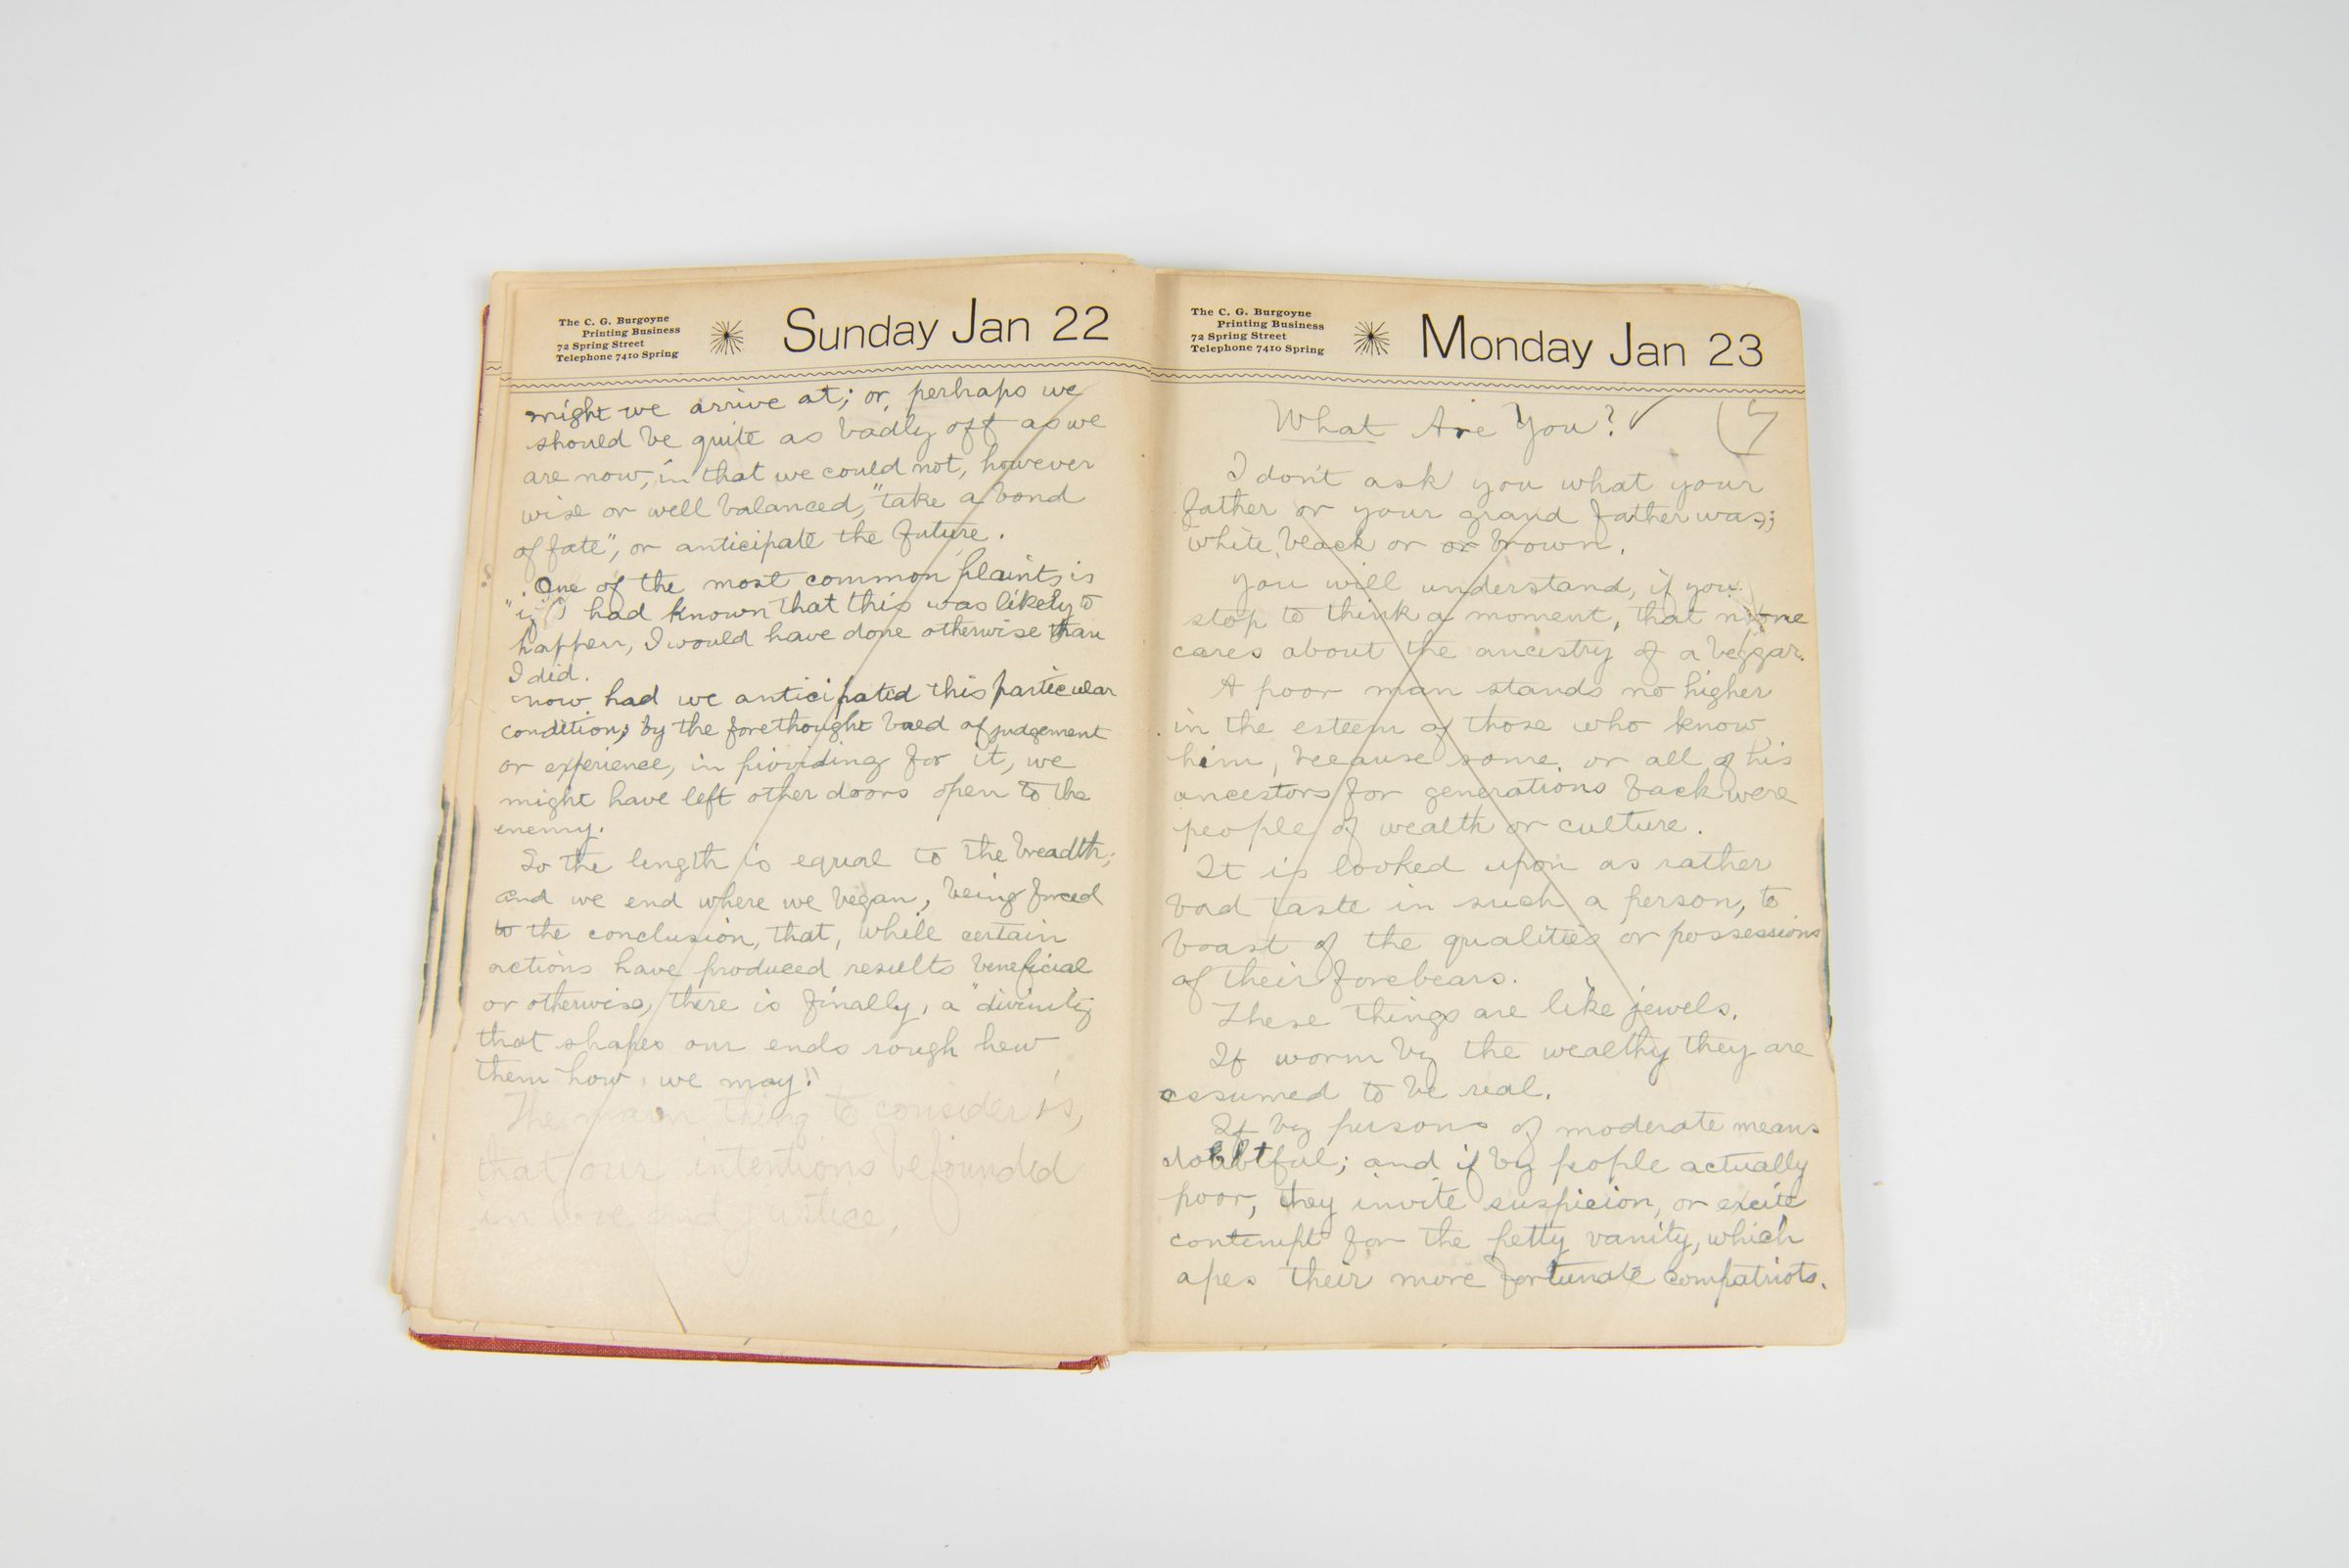 The C. G. Burgoyne
Printing Business
72 Spring Street
Telephone 7410 Spring
Sunday Jan 22
might we arrive at; or, perhaps we
should be quite as badly off as we
are now, in that we could not, however
wise or well balanced, "take a bond
of fate", or anticipate the future.
One of the most common plaints is
"if I had known that this was likely to
happen, I would have done otherwise than
I did.
now had we anticipated this particular
condition; by the forethought bred of judgement
or experience, in providing for it, we
might have left other doors open to the
enemy.
So the length is equal to the breadth;
and we end where we began, being forced
to the conclusion, that, while certain
actions have produced results beneficial
or otherwise, there is finally, a "divinity
that shapes our ends rough hew
them how we may."
The main thing to consider is,
that our intentions be founded
in love and justice.
The C. G. Burgoyne
Printing Business
72 Spring Street
Telephone 7410 Spring
Monday Jan 23
What Are You? ✓
I don't ask you what your
father or your grand father was;
white, black or or brown.
You will understand, if you
stop to think a moment, that no one
cares about the ancestry of a beggar.
A poor man stands no higher
in the esteem of those who know
him, because some, or all of his
ancestors for generations back were
people of wealth or culture.
It is looked upon as rather
bad taste in such a person, to
boast of the qualities or possessions
of their forebears.
These things are like jewels.
If worn by the wealthy they are
assumed to be real.
If by persons of moderate means
doubtful; and if by people actually
poor, they invite suspicion, or excite
contempt for the petty vanity, which
apes their more fortunate compatriots.